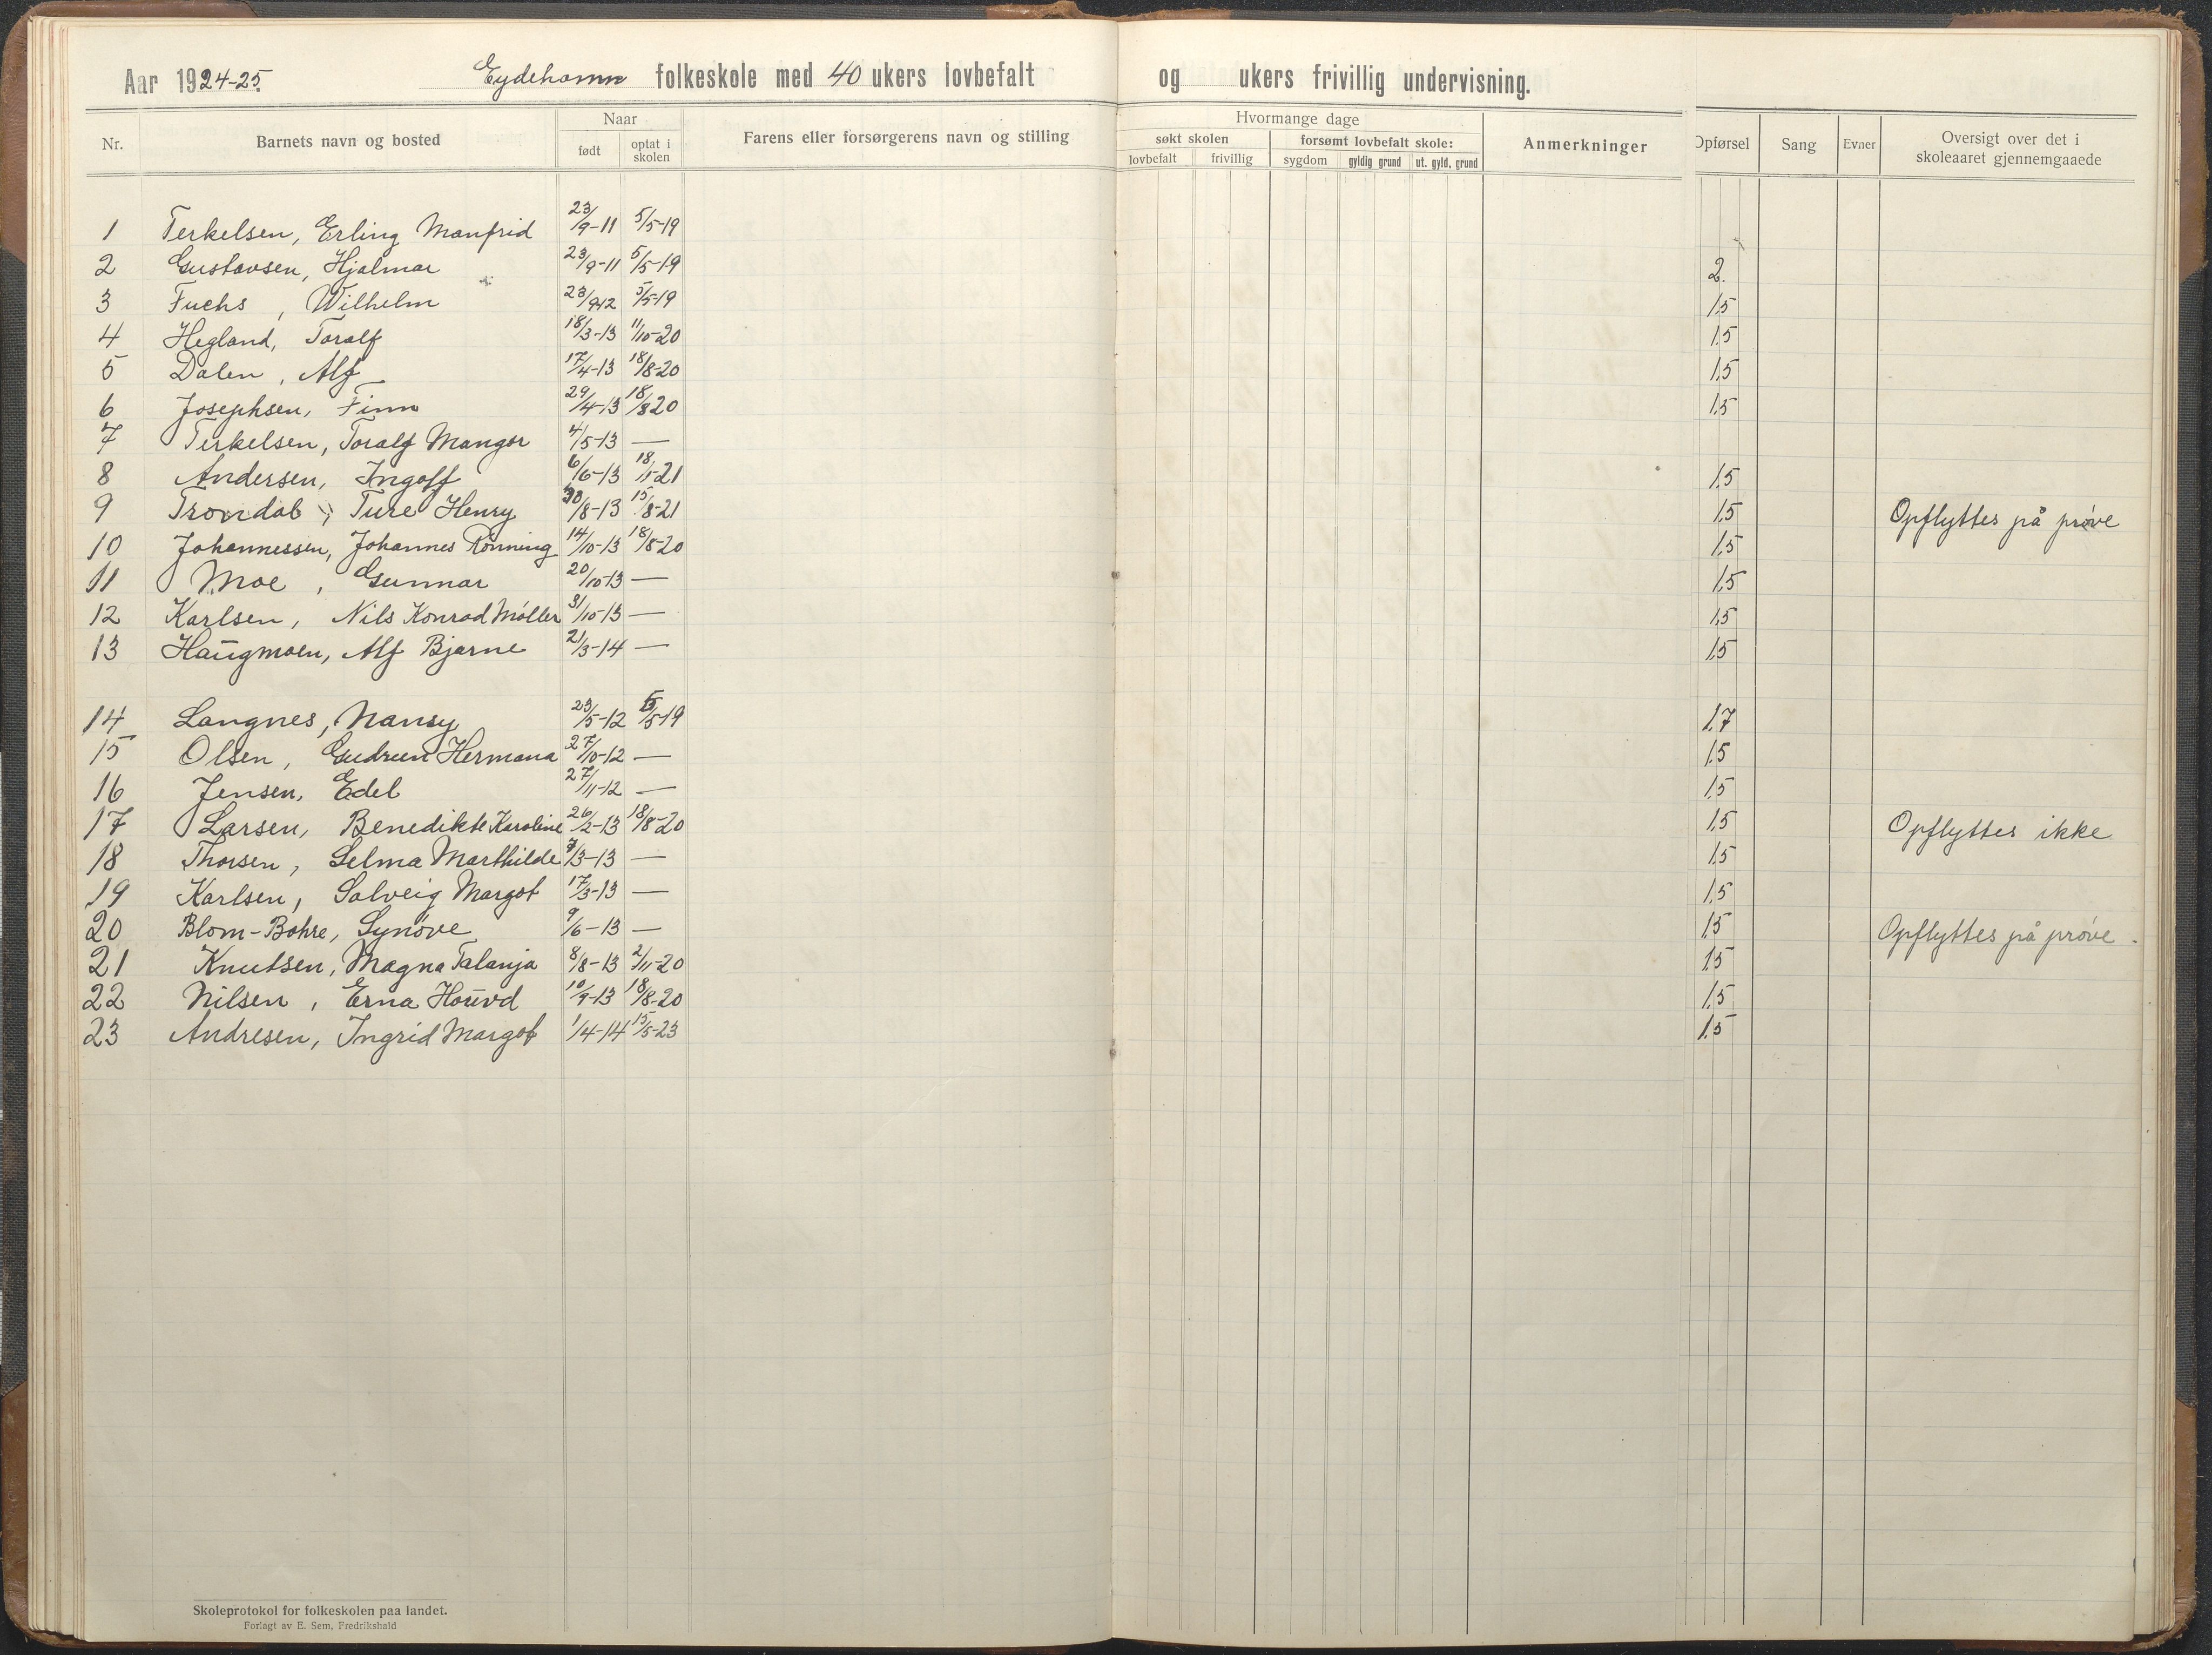 Aar 1924-25. Eydehamn folkeskole med 40 ukers lovbefalt og ukers frivillig undervisning.
Nr. Barnets navn og bosted Naar født optat i skolen Farens eller forsørgerens navn og stilling Hvormange dage søkt skolen lovbefalt frivillig forsømt lovbefalt skole: sygdom gyldig grund ut. gyld. grund Anmerkninger Opførsel Sang Evner Oversigt over det i skoleaaret gjennemgaaede
1 Terkelsen, Erling Manfrid 23/9-11 5/5-19
2 Gustavsen, Hjalmar 23/9-11 5/5-19 2.
3 Fuchs, Wilhelm 23/9-12 5/5-19 1,5
4 Hegland, Toralf 18/3-13 11/10-20 1,5
5 Dalen, Alf 17/4-13 18/8-20 1,5
6 Josephsen, Finn 29/4-13 18/8 20 1,5
7 Terkelsen, Toralf Mangor 4/5-13 —
8 Andersen, Ingolf 6/6-13 18/1-21 1,5
9 Trondal, Ture Henry 30/8-13 15/8-21 1,5 Opflyttes på prøve
10 Johannessen, Johannes Rønning 14/10-13 18/8-20 1,5
11 Moe, Gunnar 20/10-13 — 1,5
12 Karlsen, Nils Konrad Møller 31/10-13 — 1,5
13 Haugmoen, Alf Bjarne 21/3-14 — 1,5
14 Langnes, Nansy 23/5-12 5/5-19 1,7
15 Olsen, Gudrun Hermana 27/10-12 — 1,5
16 Jensen, Edel 27/11-12 — 1,5
17 Larsen, Benedikte Karoline 26/2-13 18/8-20 1,5 Opflyttes ikke
18 Thorsen, Selma Marthilde /3-13 — 1,5
19 Karlsen, Solveig Margot 17/3-13 — 1,5
20 Blom-Bohre, Synøve 9/6-13 — 1,5 Opflyttes på prøve.
21 Knutsen, Magna Talanja 8/8-13 2/11-20 1,5
22 Nilsen, Erna Houvd 10/9-13 18/8-20 1,5
23 Andresen, Ingrid Margot 1/4-14 15/5-23 1,5
Skoleprotokol for folkeskolen paa landet.
Forlagt av E. Sem, Fredrikshald